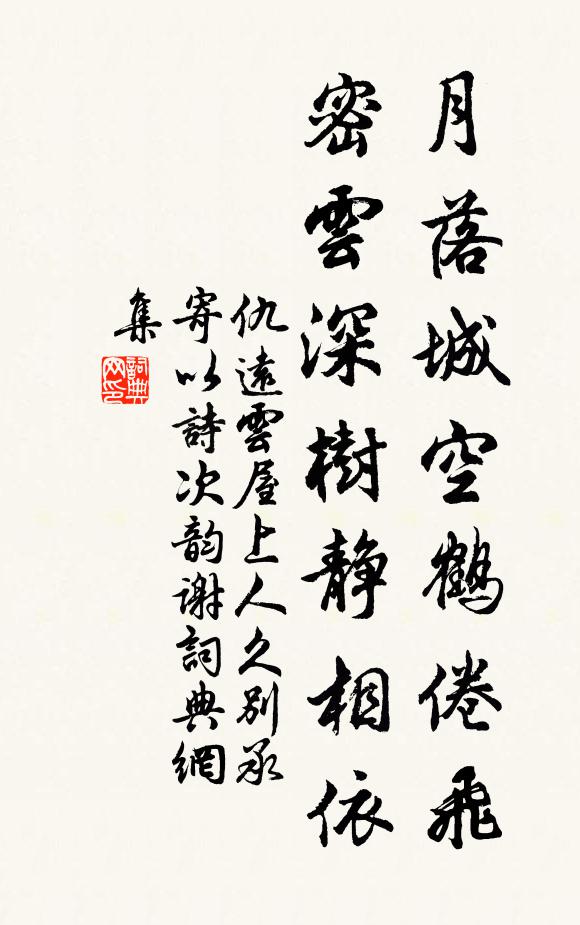 月落城空鶴倦飛
密雲深樹静相依
仇遠雲屋上人久别承
寄以詩次韵谢詞典網
集
詞典
网印